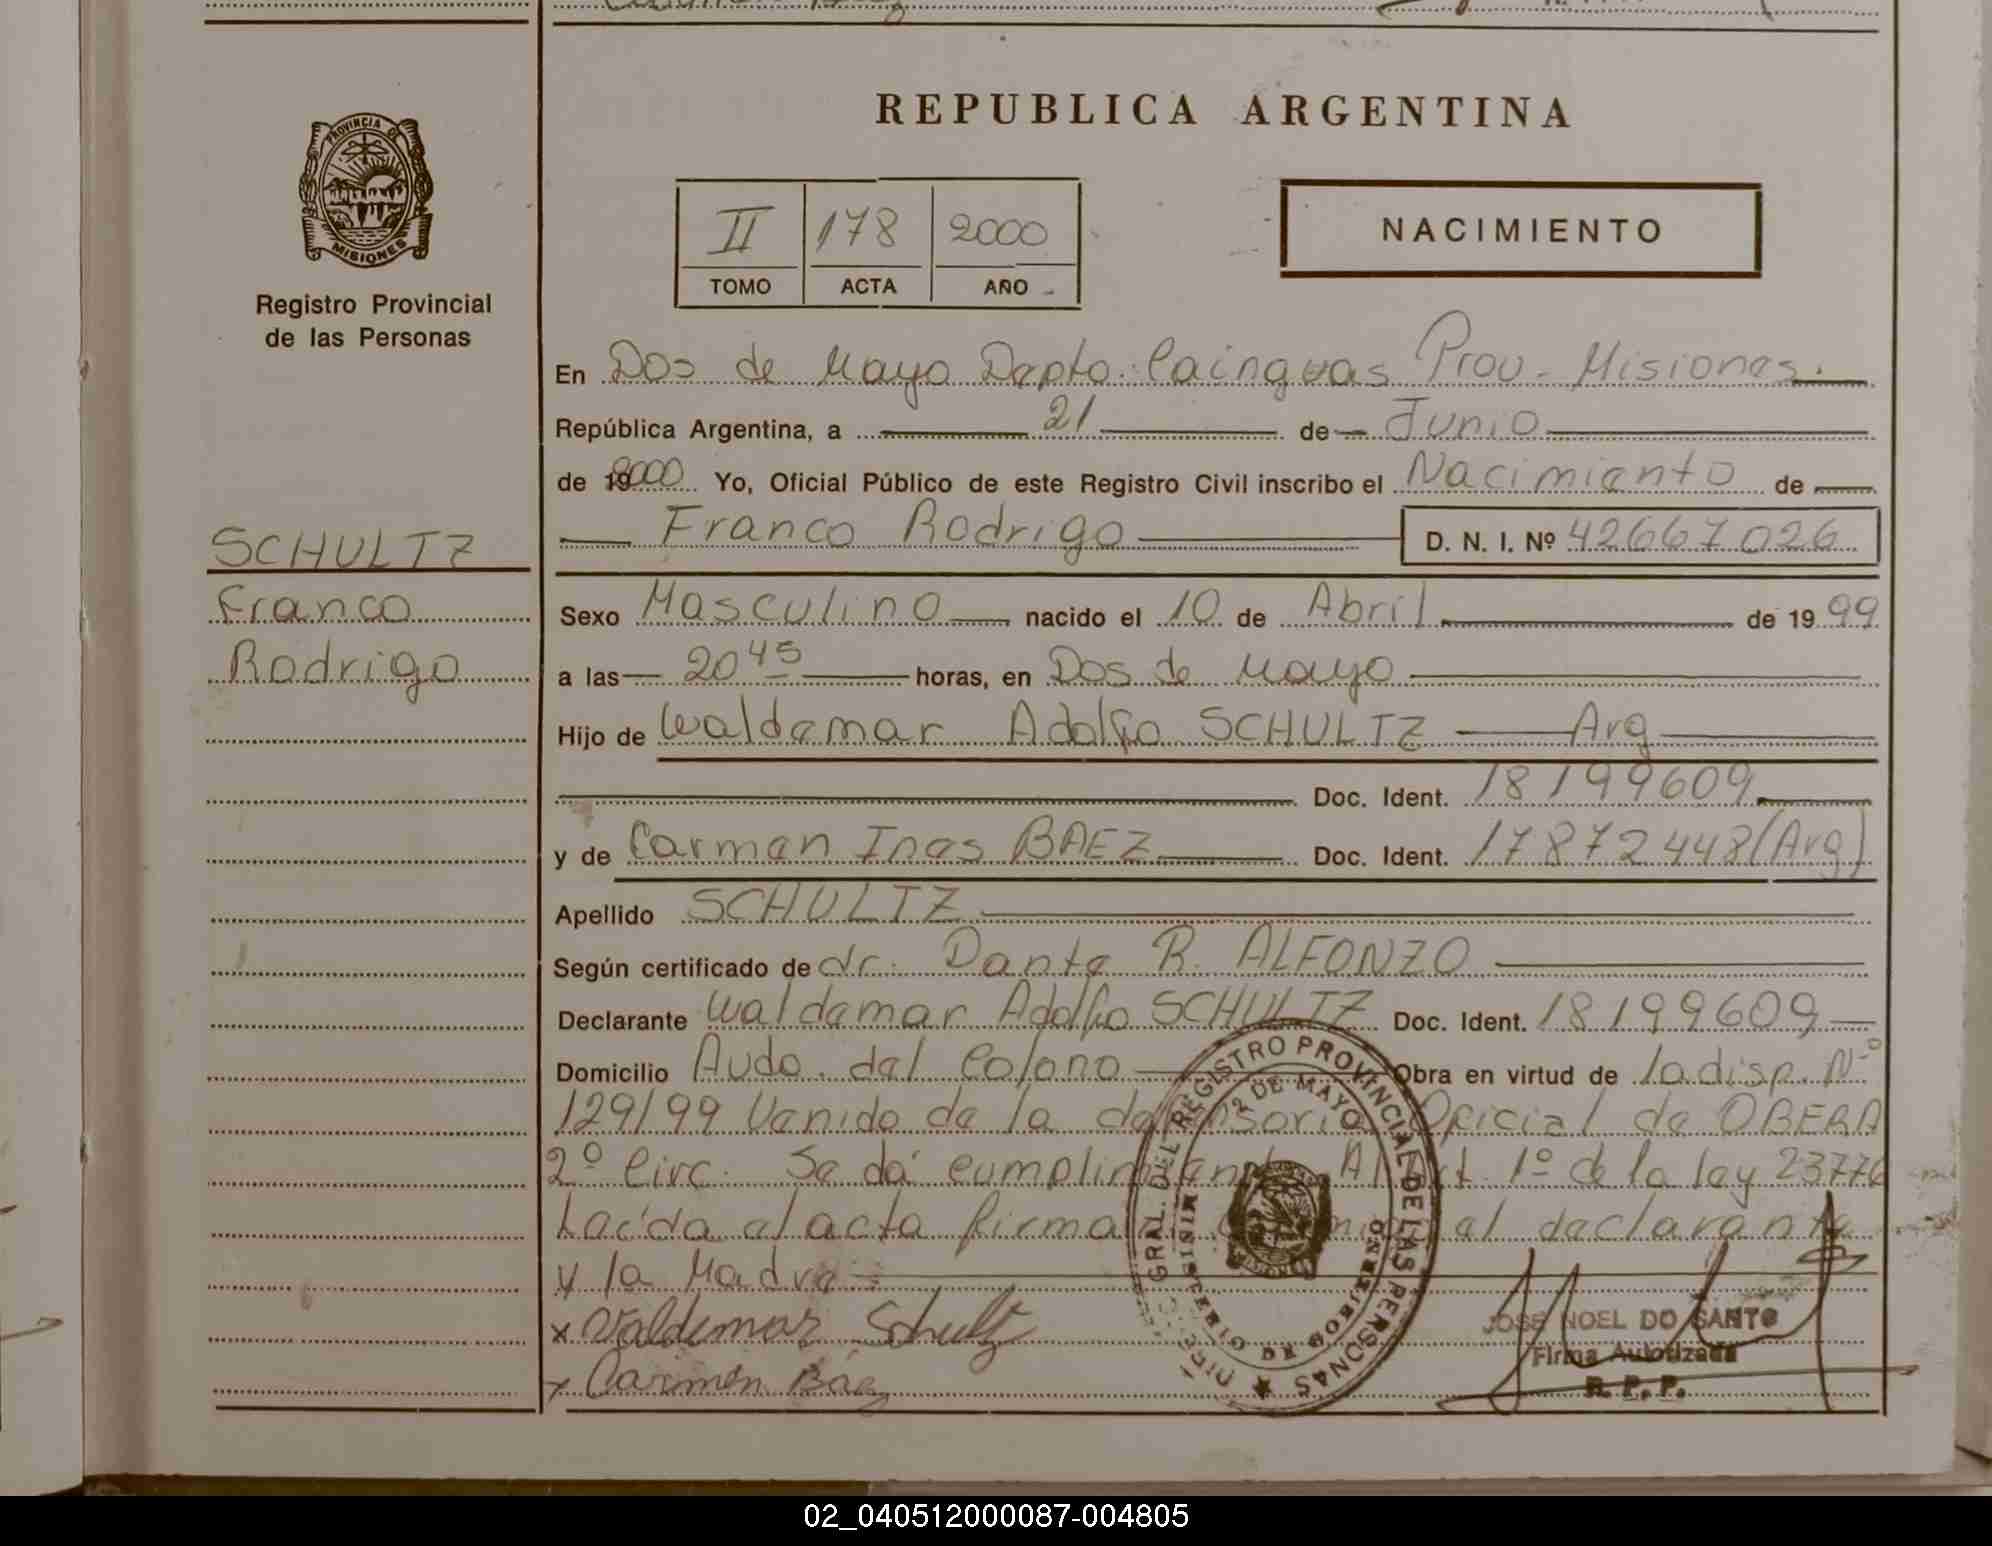 REPUBLICA ARGENTINA
PROVINCIA DE
MISIONES
Registro Provincial
de las Personas
II 178 2000
TOMO ACTA AÑO
NACIMIENTO
En Dos de Mayo Depto. Cainguas Prov. Misiones.
República Argentina, a 21 de Junio
de 19 2000 Yo, Oficial Público de este Registro Civil inscribo el Nacimiento de
Franco Rodrigo D. N. I. Nº 42667026
SCHULTZ
Franco
Rodrigo
Sexo Masculino nacido el 10 de Abril de 1999
a las 20 45 horas, en Dos de Mayo
Hijo de Waldemar Adolfo SCHULTZ Arg
Doc. Ident. 18199609
y de Carmen Ines BAEZ Doc. Ident. 17872448 (Arg)
Apellido SCHULTZ
Según certificado de dr. Dante R. ALFONZO
Declarante Waldemar Adolfo SCHULTZ Doc. Ident. 18199609
Domicilio Avda. del Colono Obra en virtud de la disp. Nº
129/99 Venido de la defensoria Oficial de OBERA
2º Circ. Se dá cumplimiento Al Art. 1º de la ley 23776
Leída el acta firman conmigo el declarante
y la Madre
x Valdemar Schultz
x Carmen Báez
DIRE. GRAL. DEL REGISTRO PROVINCIAL DE LAS PERSONAS
2 DE MAYO
MINISTERIO DE GOBIERNO
JOSE NOEL DO SANTO
Firma Autorizada
R. P. P.
02_040512000087-004805